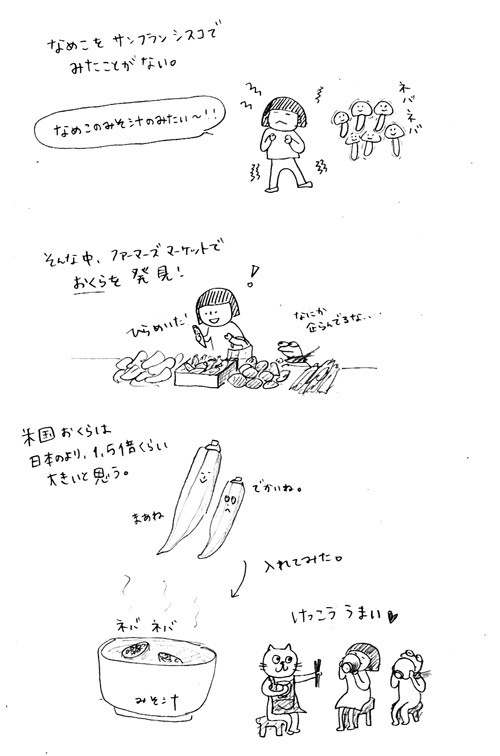 なめこを サンフランシスコで
みたことがない。
なめこのみそ汁のみたい〜!!
ネバネバ
そんな中、ファーマーズマーケットで
おくらを 発見!
!
ひらめいた!
なにか
企らんでるな...
米国 おくらは
日本のより、1.5倍くらい
大きいと思う。
まあね
でかいね。
入れてみた。
ネバ ネバ
みそ汁
けっこう うまい♥